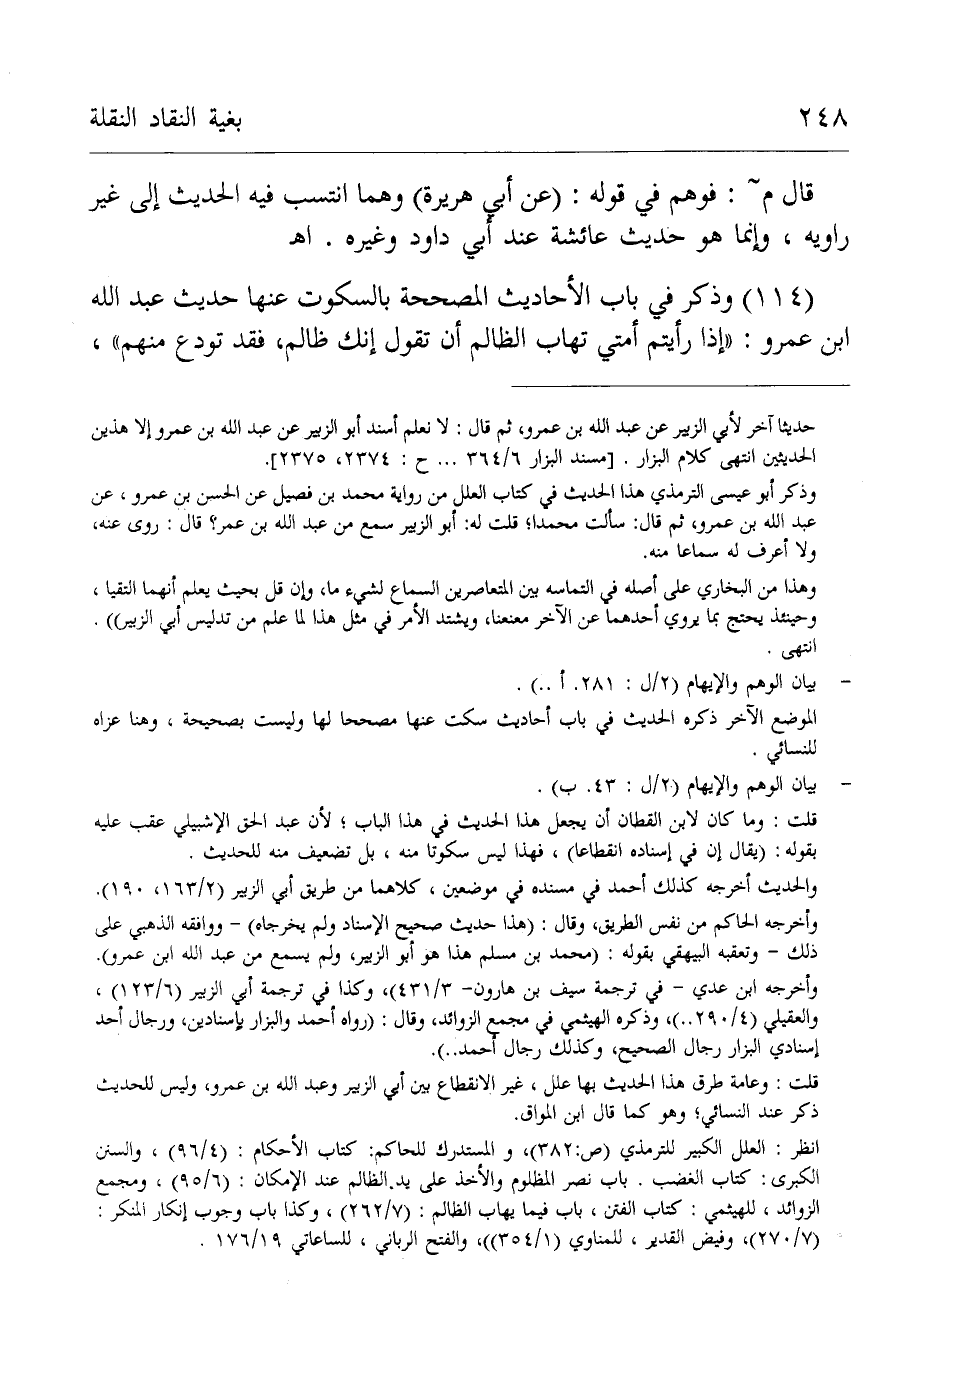 ٢٤٨ بغية النقاد النقلة
قال م~ : فوهم في قوله : (عن أبي هريرة) وهما انتسب فيه الحديث إلى غير
راويه ، وإنما هو حديث عائشة عند أبي داود وغيره . اهـ
(١١٤) وذكر في باب الأحاديث المصححة بالسكوت عنها حديث عبد الله
ابن عمرو : «إذا رأيتم أمتي تهاب الظالم أن تقول إنك ظالم، فقد تودع منهم» ،
حديثا آخر لأبي الزبير عن عبد الله بن عمرو، ثم قال : لا نعلم أسند أبو الزبير عن عبد الله بن عمرو إلا هذين
الحديثين انتهى كلام البزار . [مسند البزار ٣٦٤/٦ ... ح : ٢٣٧٤، ٢٣٧٥].
وذكر أبو عيسى الترمذي هذا الحديث في كتاب العلل من رواية محمد بن فصيل عن الحسن بن عمرو ، عن
عبد الله بن عمرو، ثم قال: سألت محمدا؛ قلت له: أبو الزبير سمع من عبد الله بن عمر؟ قال : روى عنه،
ولا أعرف له سماعا منه.
وهذا من البخاري على أصله في التماسه بين المتعاصرين السماع لشيء ما، وإن قل بحيث يعلم أنهما التقيا ،
وحينئذ يحتج بما يروي أحدهما عن الآخر معنعنا، ويشتد الأمر في مثل هذا لما علم من تدليس أبي الزبير)) .
انتهى .
- بيان الوهم والإيهام (٢/ل : ٢٨١. أ ..) .
الموضع الآخر ذكره الحديث في باب أحاديث سكت عنها مصححا لها وليست بصحيحة ، وهنا عزاه
للنسائي .
- بيان الوهم والإيهام (٢/ل : ٤٣. ب) .
قلت : وما كان لابن القطان أن يجعل هذا الحديث في هذا الباب ؛ لأن عبد الحق الإشبيلي عقب عليه
بقوله : (يقال إن في إسناده انقطاعا) ، فهذا ليس سكوتا منه ، بل تضعيف منه للحديث .
والحديث أخرجه كذلك أحمد في مسنده في موضعين ، كلاهما من طريق أبي الزبير (١٦٣/٢، ١٩٠).
وأخرجه الحاكم من نفس الطريق، وقال : (هذا حديث صحيح الإسناد ولم يخرجاه) - ووافقه الذهبي على
ذلك - وتعقبه البيهقي بقوله : (محمد بن مسلم هذا هو أبو الزبير، ولم يسمع من عبد الله ابن عمرو).
وأخرجه ابن عدي - في ترجمة سيف بن هارون- ٤٣١/٣)، وكذا في ترجمة أبي الزبير (١٢٣/٦) ،
والعقيلي (٢٩٠/٤..)، وذكره الهيثمي في مجمع الزوائد، وقال : (رواه أحمد والبزار بإسنادين، ورجال أحد
إسنادي البزار رجال الصحيح، وكذلك رجال أحمد..).
قلت : وعامة طرق هذا الحديث بها علل ، غير الانقطاع بين أبي الزبير وعبد الله بن عمرو، وليس للحديث
ذكر عند النسائي؛ وهو كما قال ابن المواق.
انظر : العلل الكبير للترمذي (ص:٣٨٢)، و المستدرك للحاكم: كتاب الأحكام : (٩٦/٤) ، والسنن
الكبرى: كتاب الغضب . باب نصر المظلوم والأخذ على يد.الظالم عند الإمكان : (٩٥/٦) ، ومجمع
الزوائد ، للهيثمي : كتاب الفتن ، باب فيما يهاب الظالم : (٢٦٢/٧) ، وكذا باب وجوب إنكار المنكر :
(٢٧٠/٧)، وفيض القدير ، للمناوي (٣٥٤/١))، والفتح الرباني ، للساعاتي ١٧٦/١٩ .